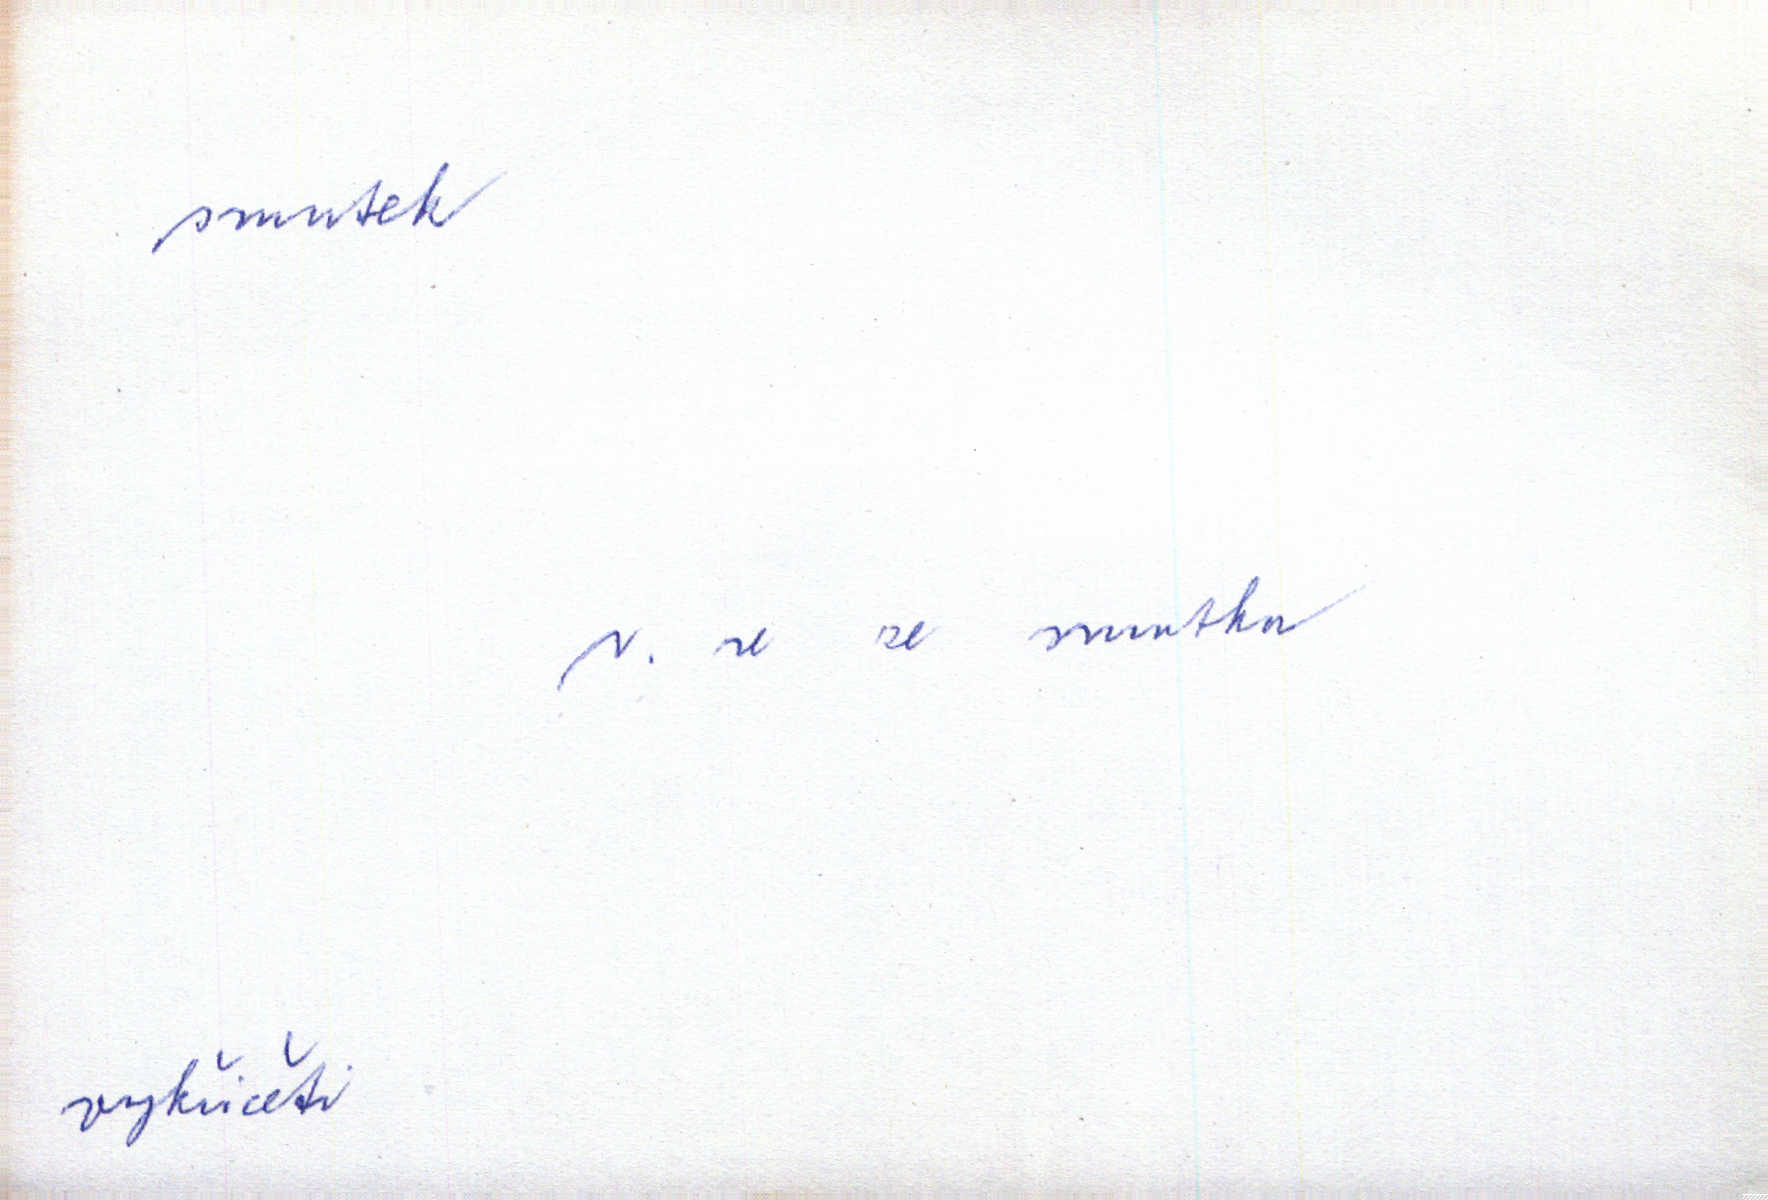 smutek
v. se ze smutku
vykřičeti